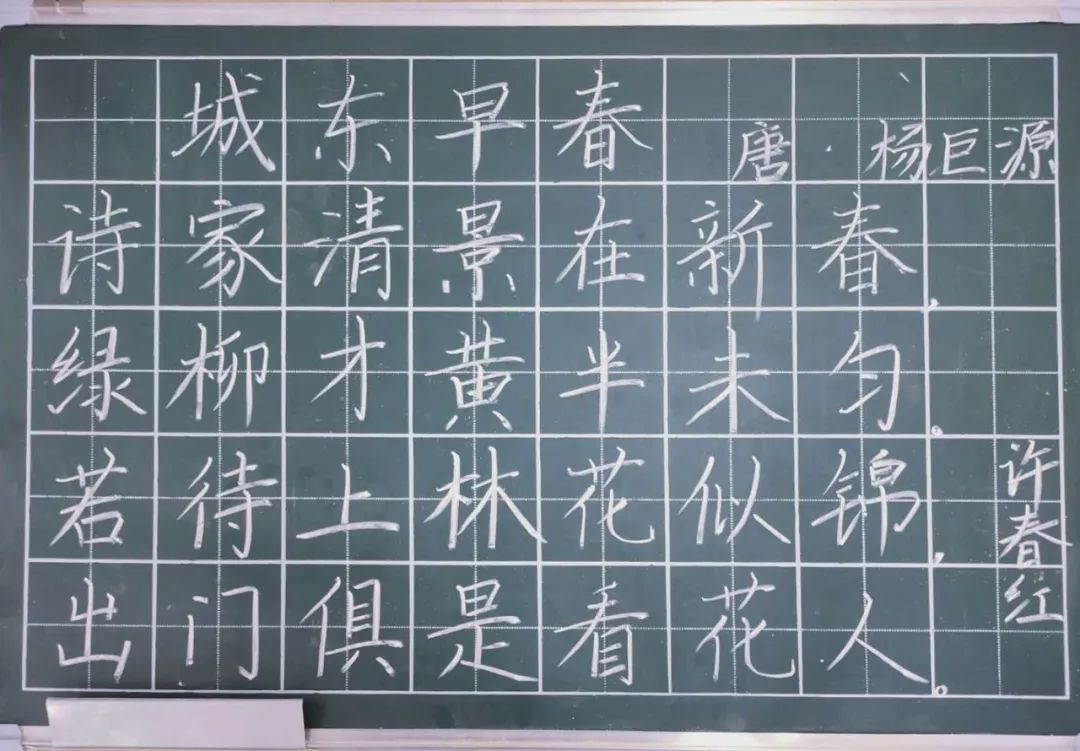 城东早春 唐·杨巨源
诗家清景在新春,
绿柳才黄半未匀。
若待上林花似锦,
出门俱是看花人。
许春红